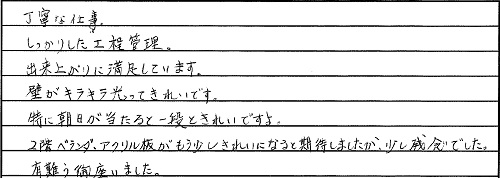 丁寧な仕事。
しっかりした工程管理。
出来上がりに満足しています。
壁がキラキラ光ってきれいです。
特に朝日が当たると一段ときれいですよ。
2階ベランダ、アクリル板がもう少しきれいになると期待しましたが、少し残念でした。
有難う御座いました。